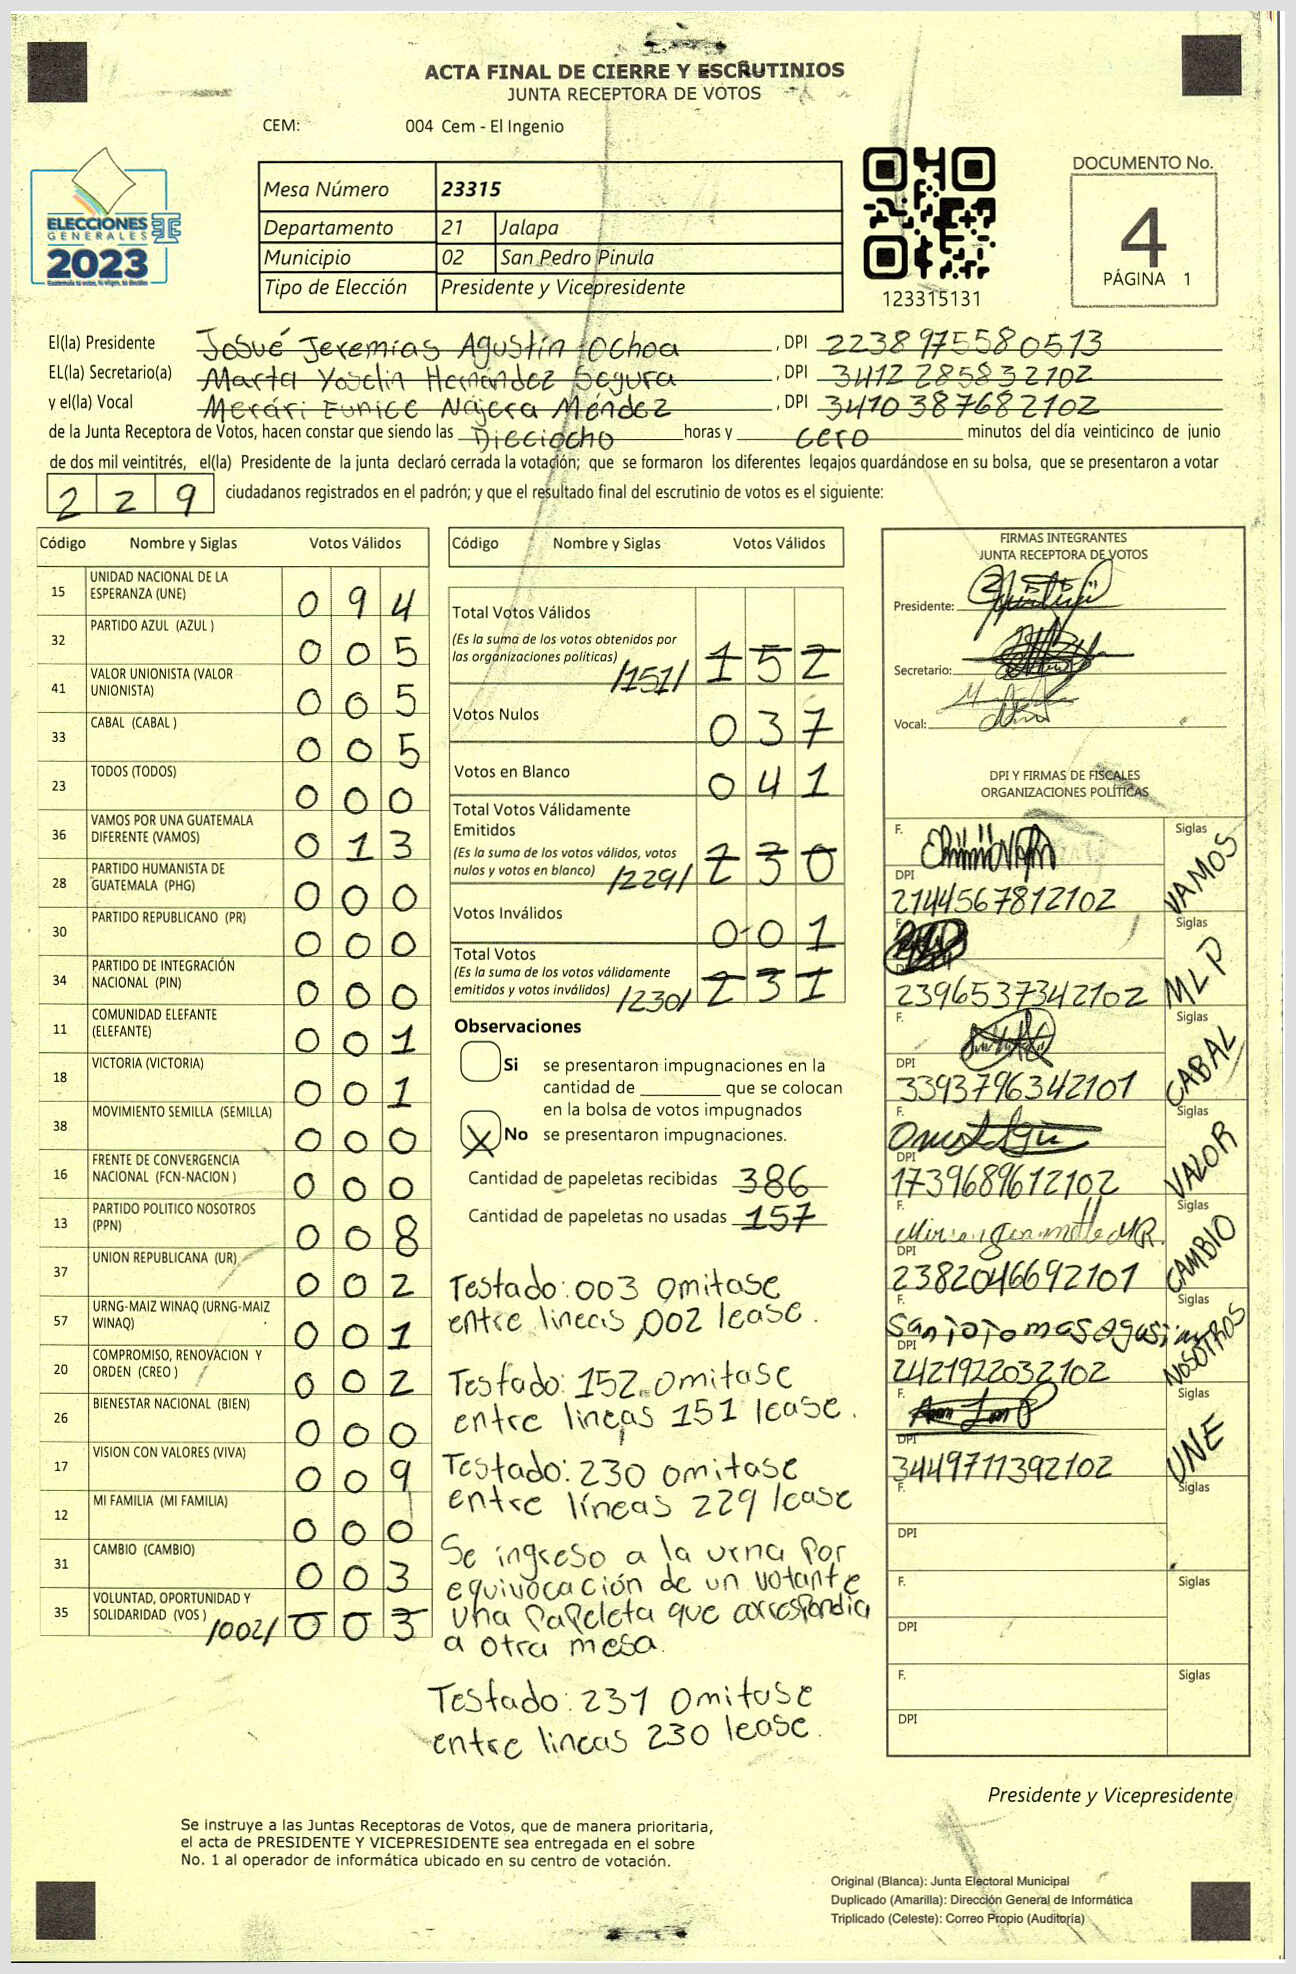 ACTA FINAL DE CIERRE Y ESCRUTINIOS
JUNTA RECEPTORA DE VOTOS
CEM: 004 Cem - El Ingenio
ELECCIONES
GENERALES
2023
Mesa Número 23315
Departamento 21 Jalapa
Municipio 02 San Pedro Pinula
Tipo de Elección Presidente y Vicepresidente
123315131
DOCUMENTO No.
4
PÁGINA 1
El(la) Presidente Josué Jeremías Agustín Ochoa, DPI 2238975580513
EL(la) Secretario(a) Marta Yoselin Hernández Segura, DPI 3412285832102
y el(la) Vocal Merári Eunice Nájera Méndez, DPI 3410387682102
de la Junta Receptora de Votos, hacen constar que siendo las Dieciocho horas y cero minutos del día veinticinco de junio
de dos mil veintitrés, el(la) Presidente de la junta declaró cerrada la votación; que se formaron los diferentes legajos guardándose en su bolsa, que se presentaron a votar
229 ciudadanos registrados en el padrón; y que el resultado final del escrutinio de votos es el siguiente:
Código Nombre y Siglas Votos Válidos
15 UNIDAD NACIONAL DE LA ESPERANZA (UNE) 094
32 PARTIDO AZUL (AZUL ) 005
41 VALOR UNIONISTA (VALOR UNIONISTA) 005
33 CABAL (CABAL ) 005
23 TODOS (TODOS) 000
36 VAMOS POR UNA GUATEMALA DIFERENTE (VAMOS) 013
28 PARTIDO HUMANISTA DE GUATEMALA (PHG) 000
30 PARTIDO REPUBLICANO (PR) 000
34 PARTIDO DE INTEGRACIÓN NACIONAL (PIN) 000
11 COMUNIDAD ELEFANTE (ELEFANTE) 001
18 VICTORIA (VICTORIA) 001
38 MOVIMIENTO SEMILLA (SEMILLA) 000
16 FRENTE DE CONVERGENCIA NACIONAL (FCN-NACION ) 000
13 PARTIDO POLITICO NOSOTROS (PPN) 008
37 UNION REPUBLICANA (UR) 002
57 URNG-MAIZ WINAQ (URNG-MAIZ WINAQ) 001
20 COMPROMISO, RENOVACION Y ORDEN (CREO ) 002
26 BIENESTAR NACIONAL (BIEN) 000
17 VISION CON VALORES (VIVA) 009
12 MI FAMILIA (MI FAMILIA) 000
31 CAMBIO (CAMBIO) 003
35 VOLUNTAD, OPORTUNIDAD Y SOLIDARIDAD (VOS ) /002/ 003
Código Nombre y Siglas Votos Válidos
Total Votos Válidos
(Es la suma de los votos obtenidos por
las organizaciones politicas) /151/ 152
Votos Nulos 037
Votos en Blanco 041
Total Votos Válidamente
Emitidos
(Es la suma de los votos válidos, votos
nulos y votos en blanco) /229/ 230
Votos Inválidos 001
Total Votos
(Es la suma de los votos válidamente
emitidos y votos inválidos) /230/ 231
Observaciones
Si se presentaron impugnaciones en la
cantidad de ________ que se colocan
en la bolsa de votos impugnados
X No se presentaron impugnaciones.
Cantidad de papeletas recibidas 386
Cantidad de papeletas no usadas 157
Testado: 003 Omitase
entre lineas 002 lease.
Testado: 152 omitase
entre lineas 151 lease.
Testado: 230 omitase
entre líneas 229 lease
Se ingreso a la urna por
equivocación de un votante
una papeleta que correspondia
a otra mesa.
Testado: 231 Omitase
entre lineas 230 lease.
FIRMAS INTEGRANTES
JUNTA RECEPTORA DE VOTOS
Presidente:
Secretario:
Vocal:
DPI Y FIRMAS DE FISCALES
ORGANIZACIONES POLÍTICAS
F. Siglas
DPI
2144567812102 VAMOS
F. Siglas
DPI
2396537342102 MLP
F. Siglas
DPI
3393796342101 CABAL
F. Siglas
DPI
1739689612102 VALOR
F. Siglas
DPI
2382046692101 CAMBIO
F. Siglas
DPI
2421922032102 NOSOTROS
F. Siglas
DPI
3449711392102 UNE
F. Siglas
DPI
F. Siglas
DPI
F. Siglas
DPI
Presidente y Vicepresidente
Se instruye a las Juntas Receptoras de Votos, que de manera prioritaria,
el acta de PRESIDENTE Y VICEPRESIDENTE sea entregada en el sobre
No. 1 al operador de informática ubicado en su centro de votación.
Original (Blanca): Junta Electoral Municipal
Duplicado (Amarilla): Dirección General de Informática
Triplicado (Celeste): Correo Propio (Auditoría)